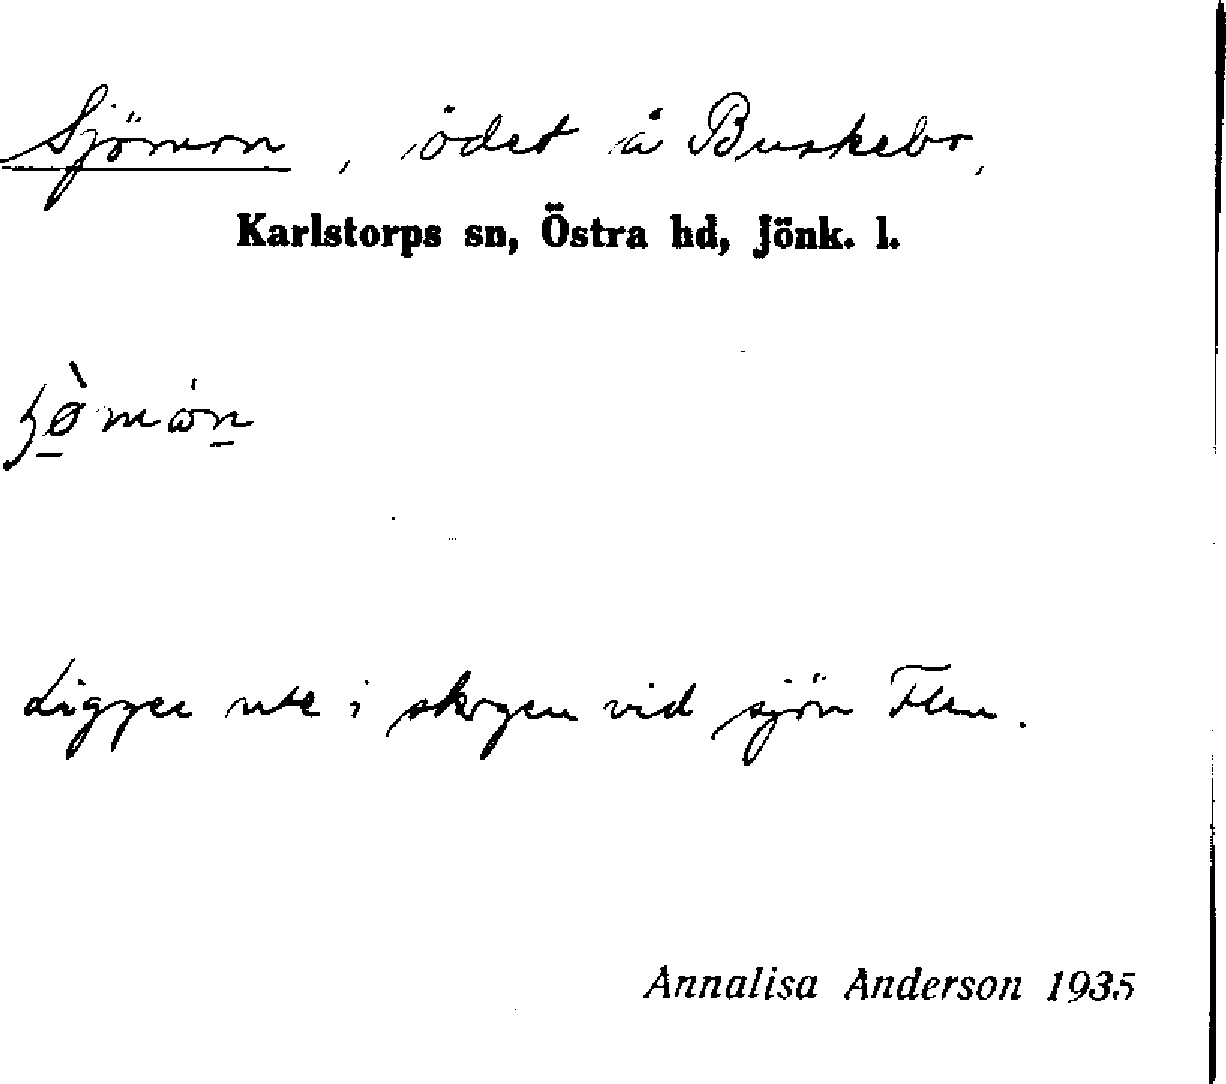 Sjömon, ödet å Buskebo,
Karlstorps sn, Östra hd, Jönk. l.
Ligger ute i skogen vid sjön Flen.
Annalisa Anderson 1935